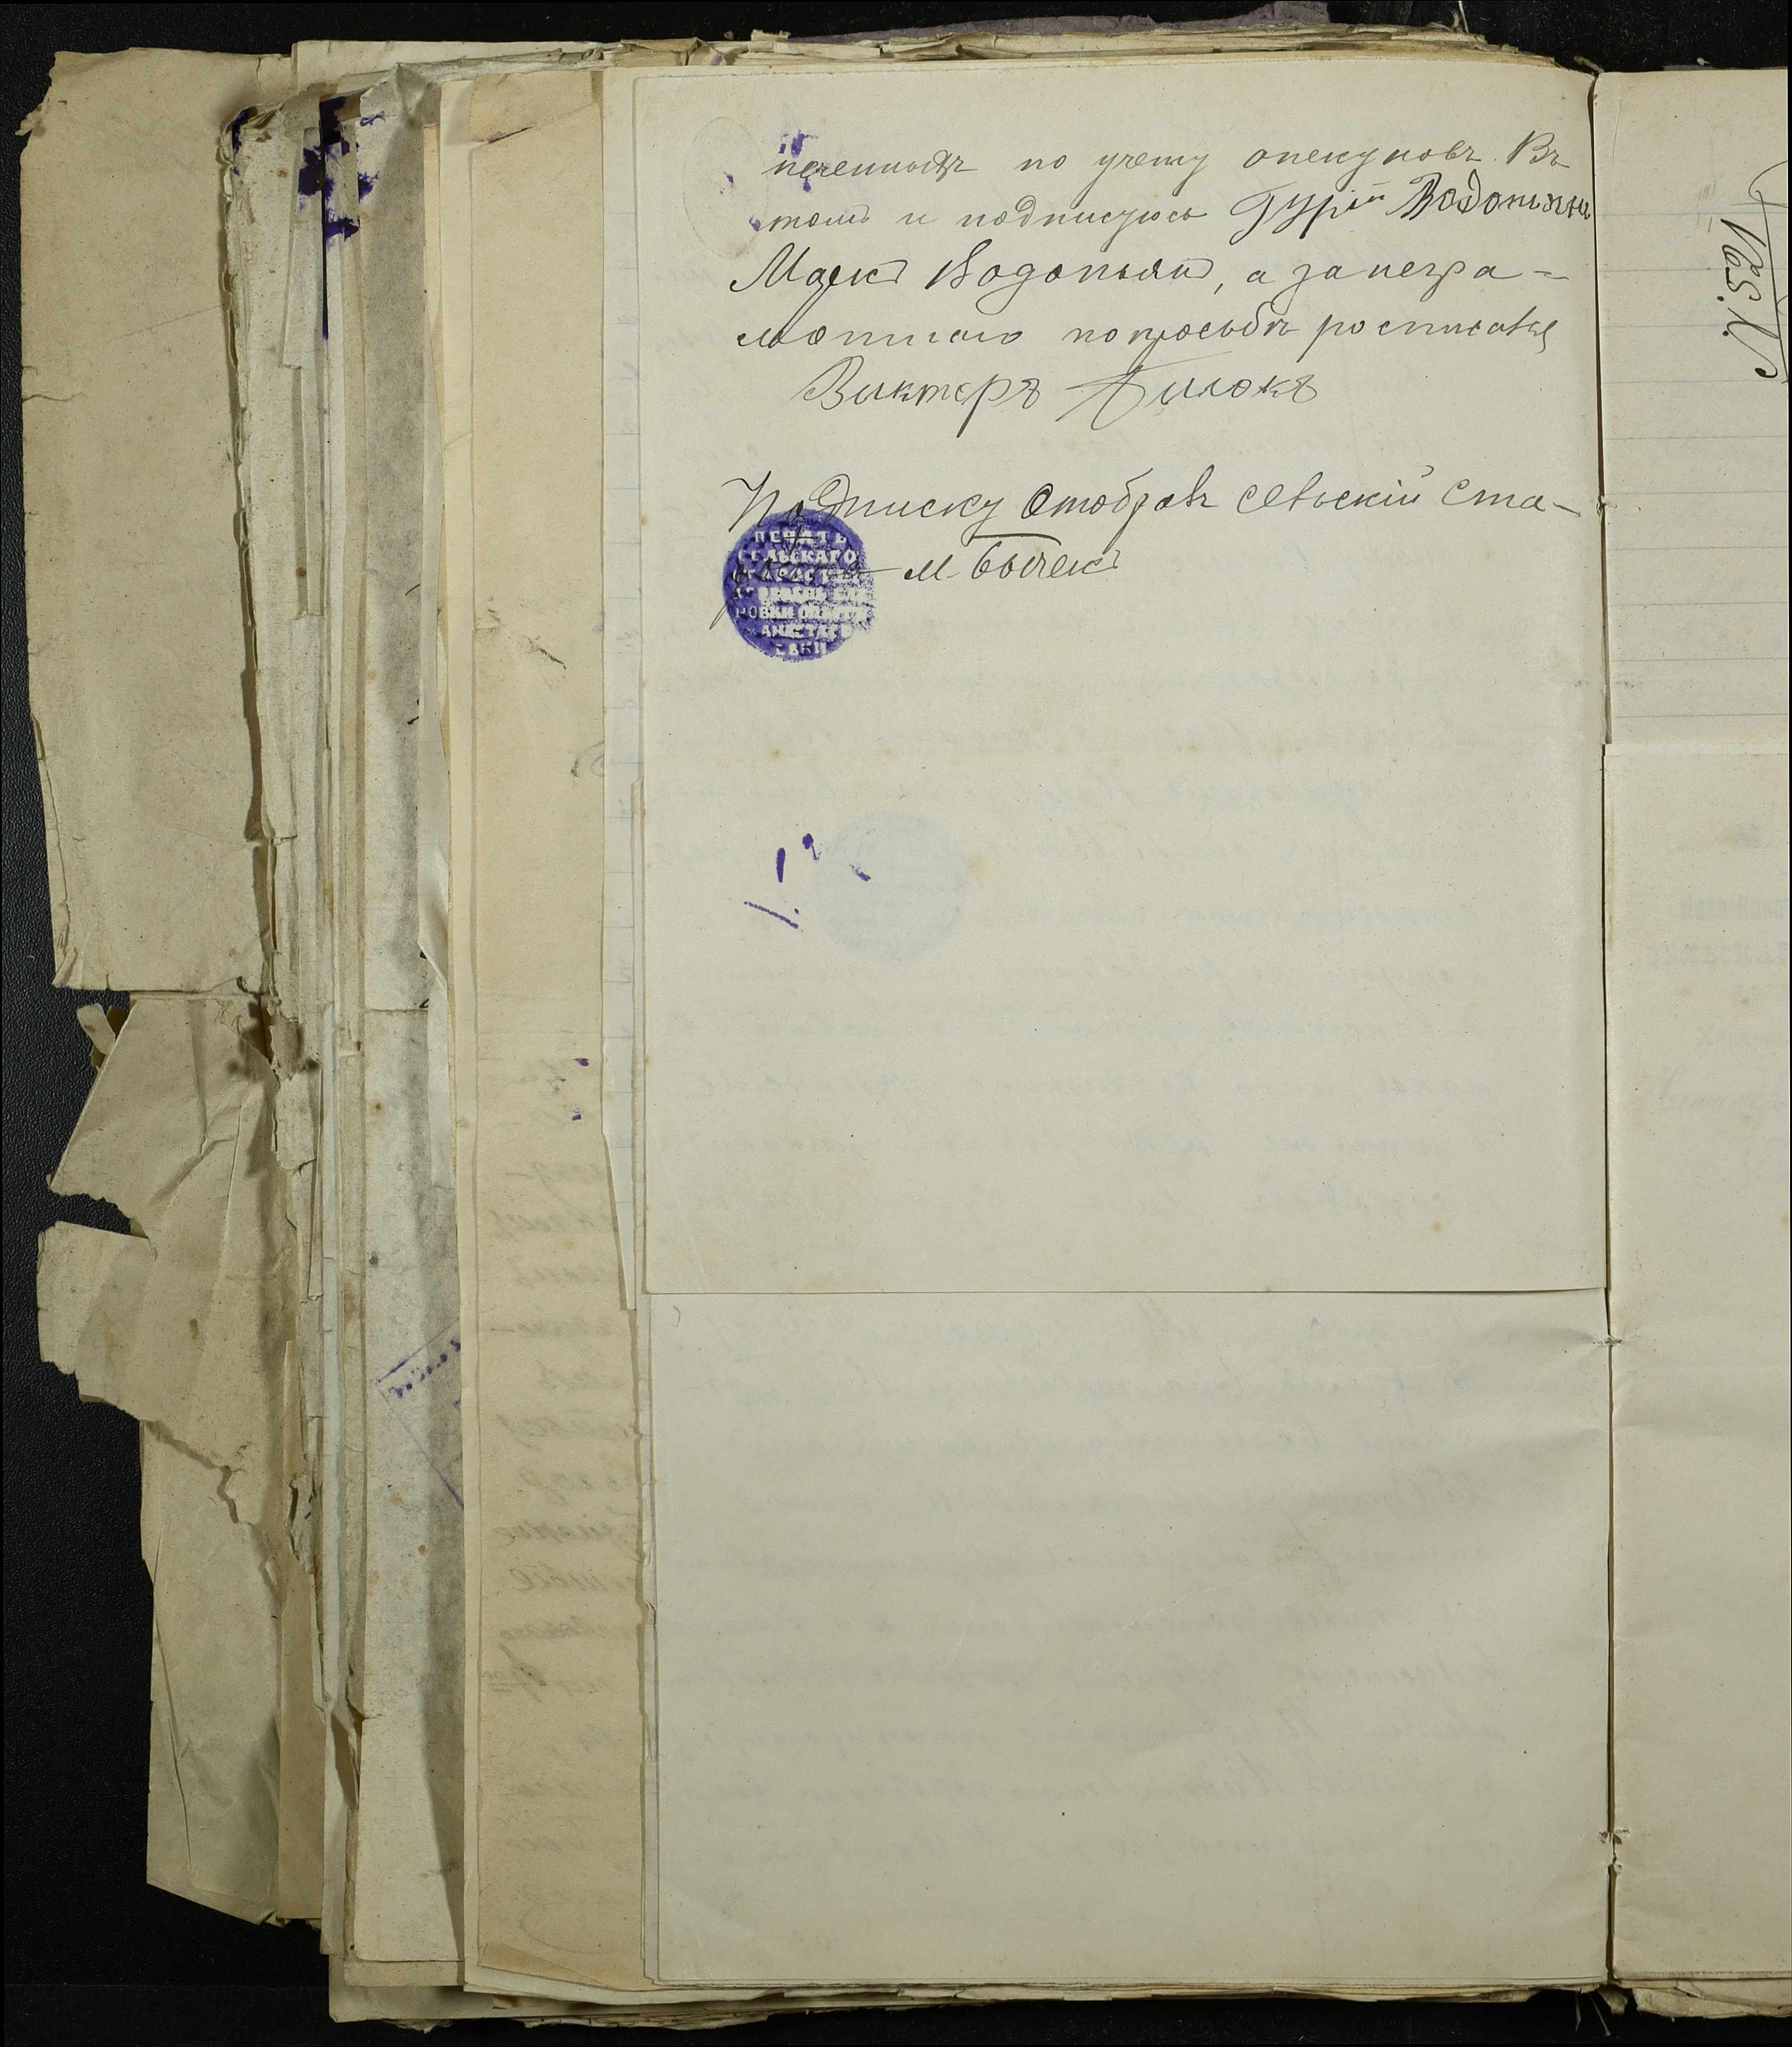 печенныхъ по учету опекуновъ. Въ
томъ и подписуюсь Гурій Водопьян
Маркъ Водопьянъ, а за негра-
мотнаго по просьбѣ росписався
Викторъ Билокъ
Подписку отобравъ Сельскій Ста-
М. Бычекъ
ПЕЧАТЬ
СЕЛЬСКАГО
СТАРОСТЫ